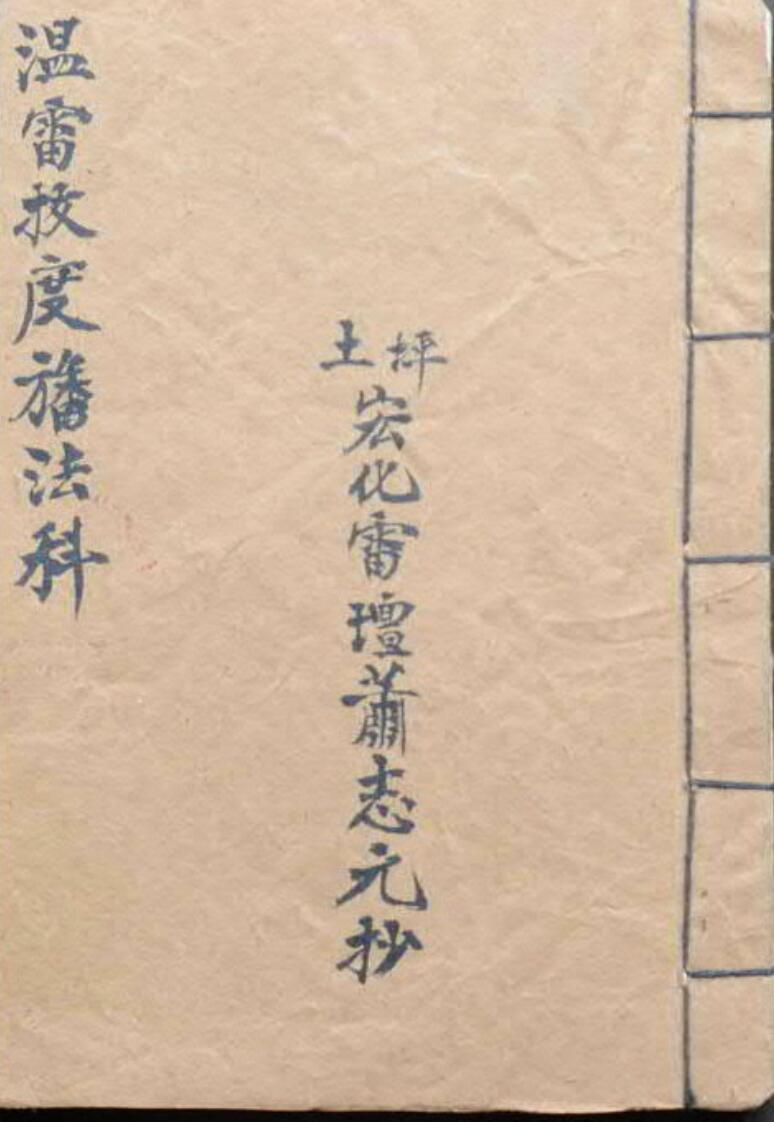 土坪
宏化雷壇蕭志元抄
温雷拔度旛法科